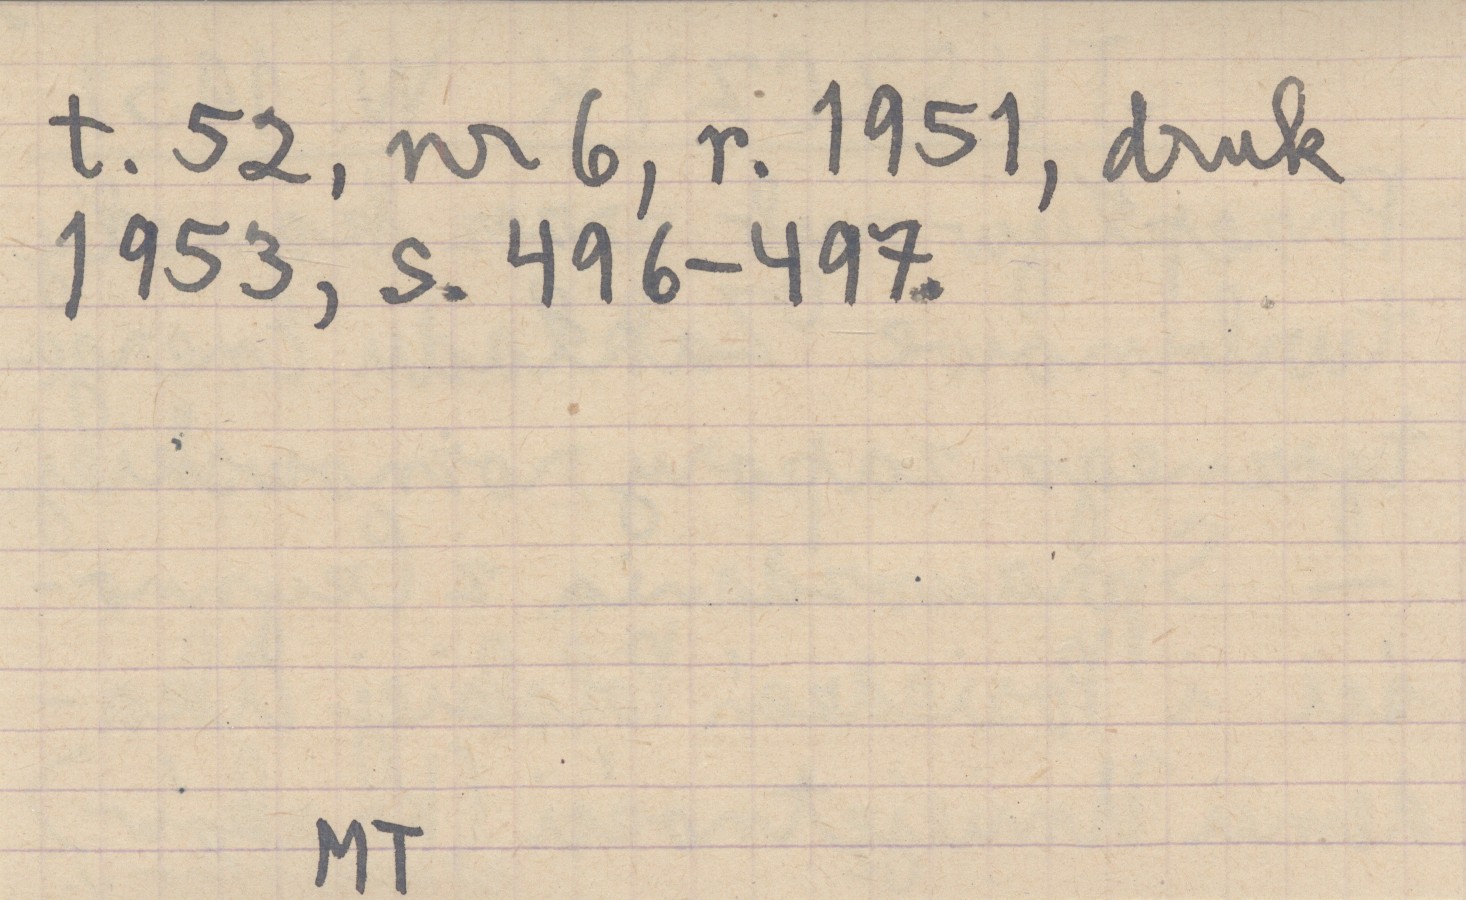 t. 52, nr 6, r. 1951, druk
1953, s. 496-497.
MT